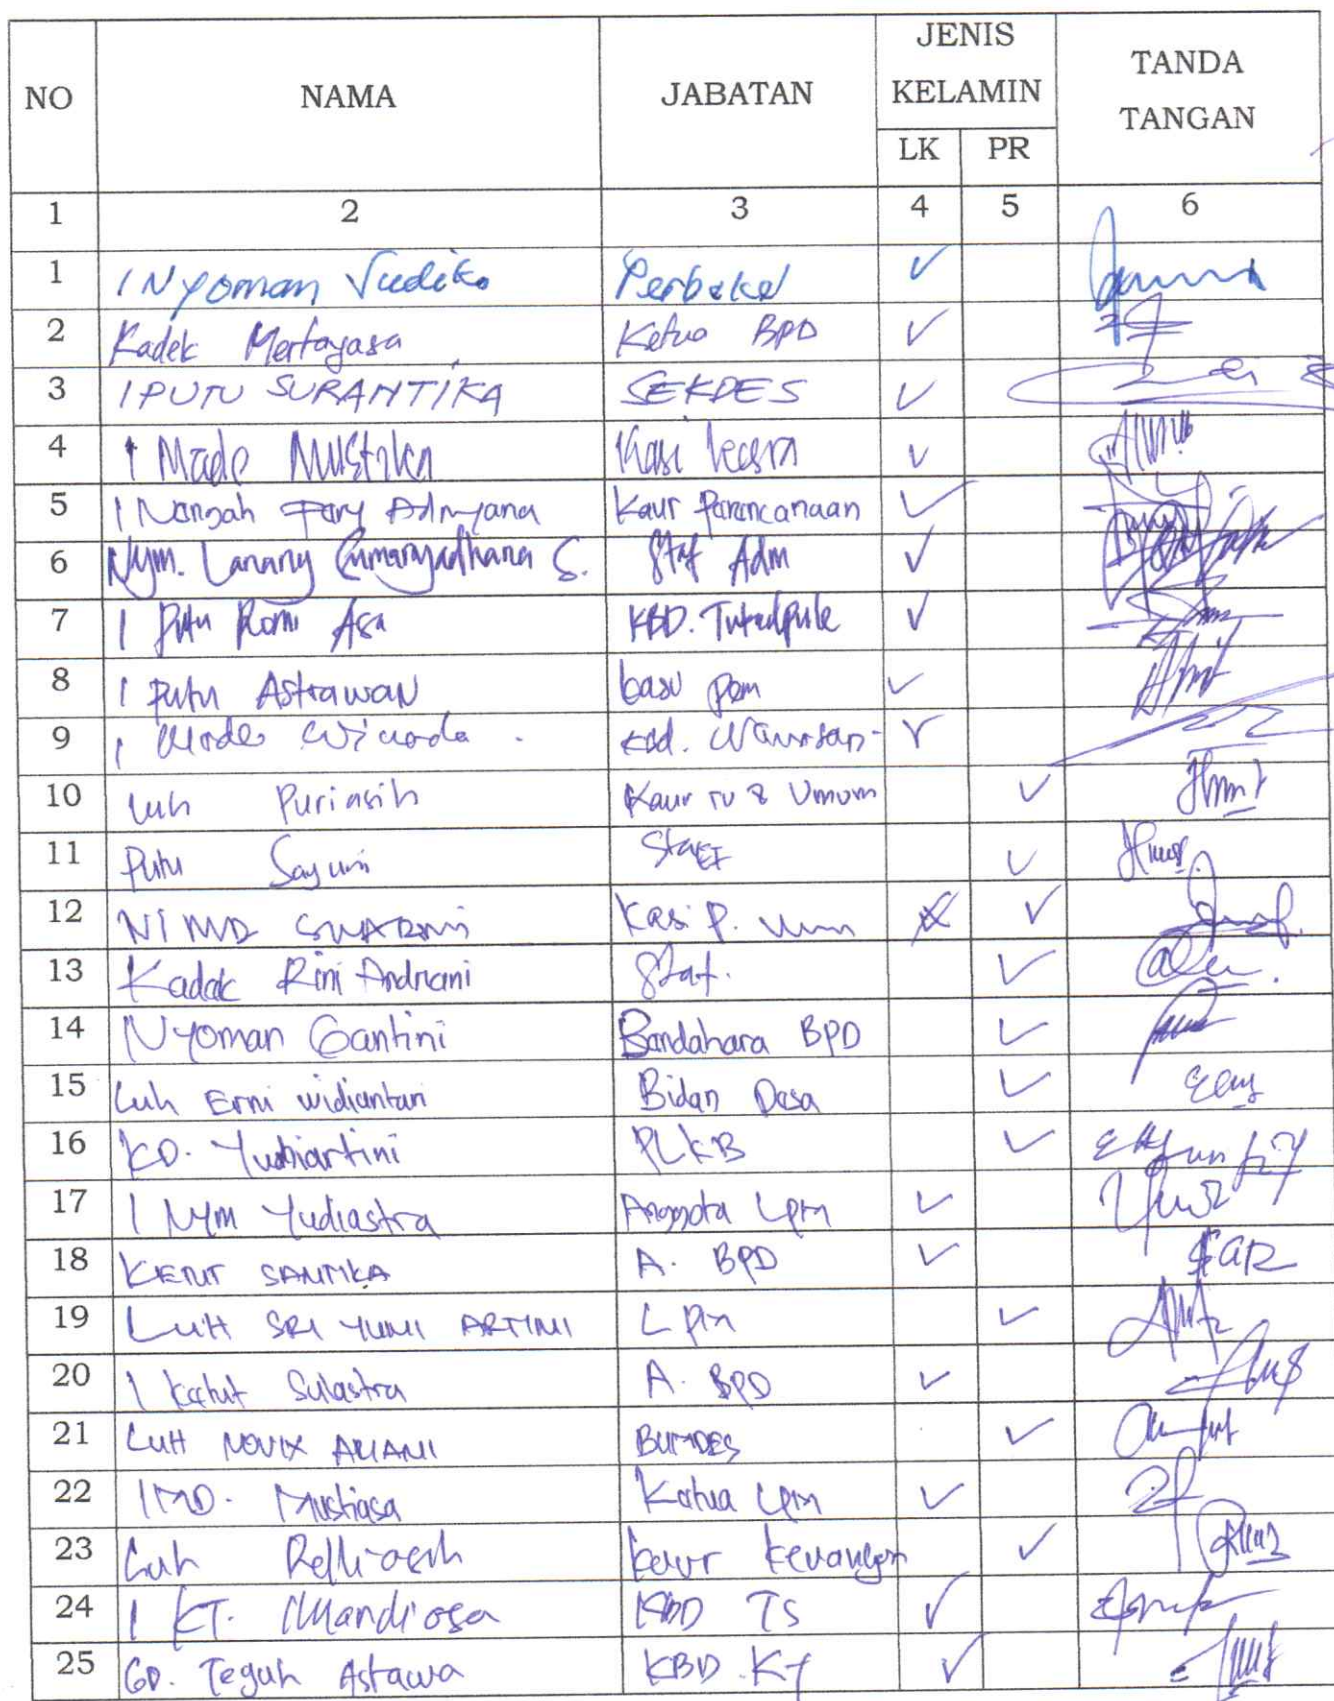 NO NAMA JABATAN JENIS KELAMIN TANDA TANGAN
LK PR
1 2 3 4 5 6
1 I Nyoman Sudika Perbekel ✓
2 Kadek Mertayasa Ketua BPD ✓
3 I PUTU SURANTIKA SEKDES ✓
4 I Made Mustika Kasi kesra ✓
5 I Nengah Adnyana Kaur Perencanaan ✓
6 Nym. Lanang S. Staf Adm ✓
7 I Putu Romi Asa KBD. ✓
8 I Putu Astrawan kasi pem ✓
9 I Made Winada . kbd. ✓
10 Luh Puriasih Kaur TU & Umum ✓
11 Putu Sayuni Staf ✓
12 NI MD SUARDNI Kasi P. Umm ✓
13 Kadek Rini Andriani Staf. ✓
14 Nyoman Gantini Bendahara BPD ✓
15 Luh Erni widiantari Bidan Desa ✓
16 KD. Yudiartini PLKB ✓
17 I Nym Yudiastra Anggota LPM ✓
18 KETUT SANTIKA A. BPD ✓
19 LUH SRI YUNI ARTINI LPM ✓
20 I Ketut Sulastra A. BPD ✓
21 LUH NOVIX ARIANI BUMDES ✓
22 I MD. Mustiasa Ketua LPM ✓
23 Luh Relliasih kaur keuangan ✓
24 I KT. Mandiasa KBD TS ✓
25 GD. Teguh Astawa KBD. KT ✓